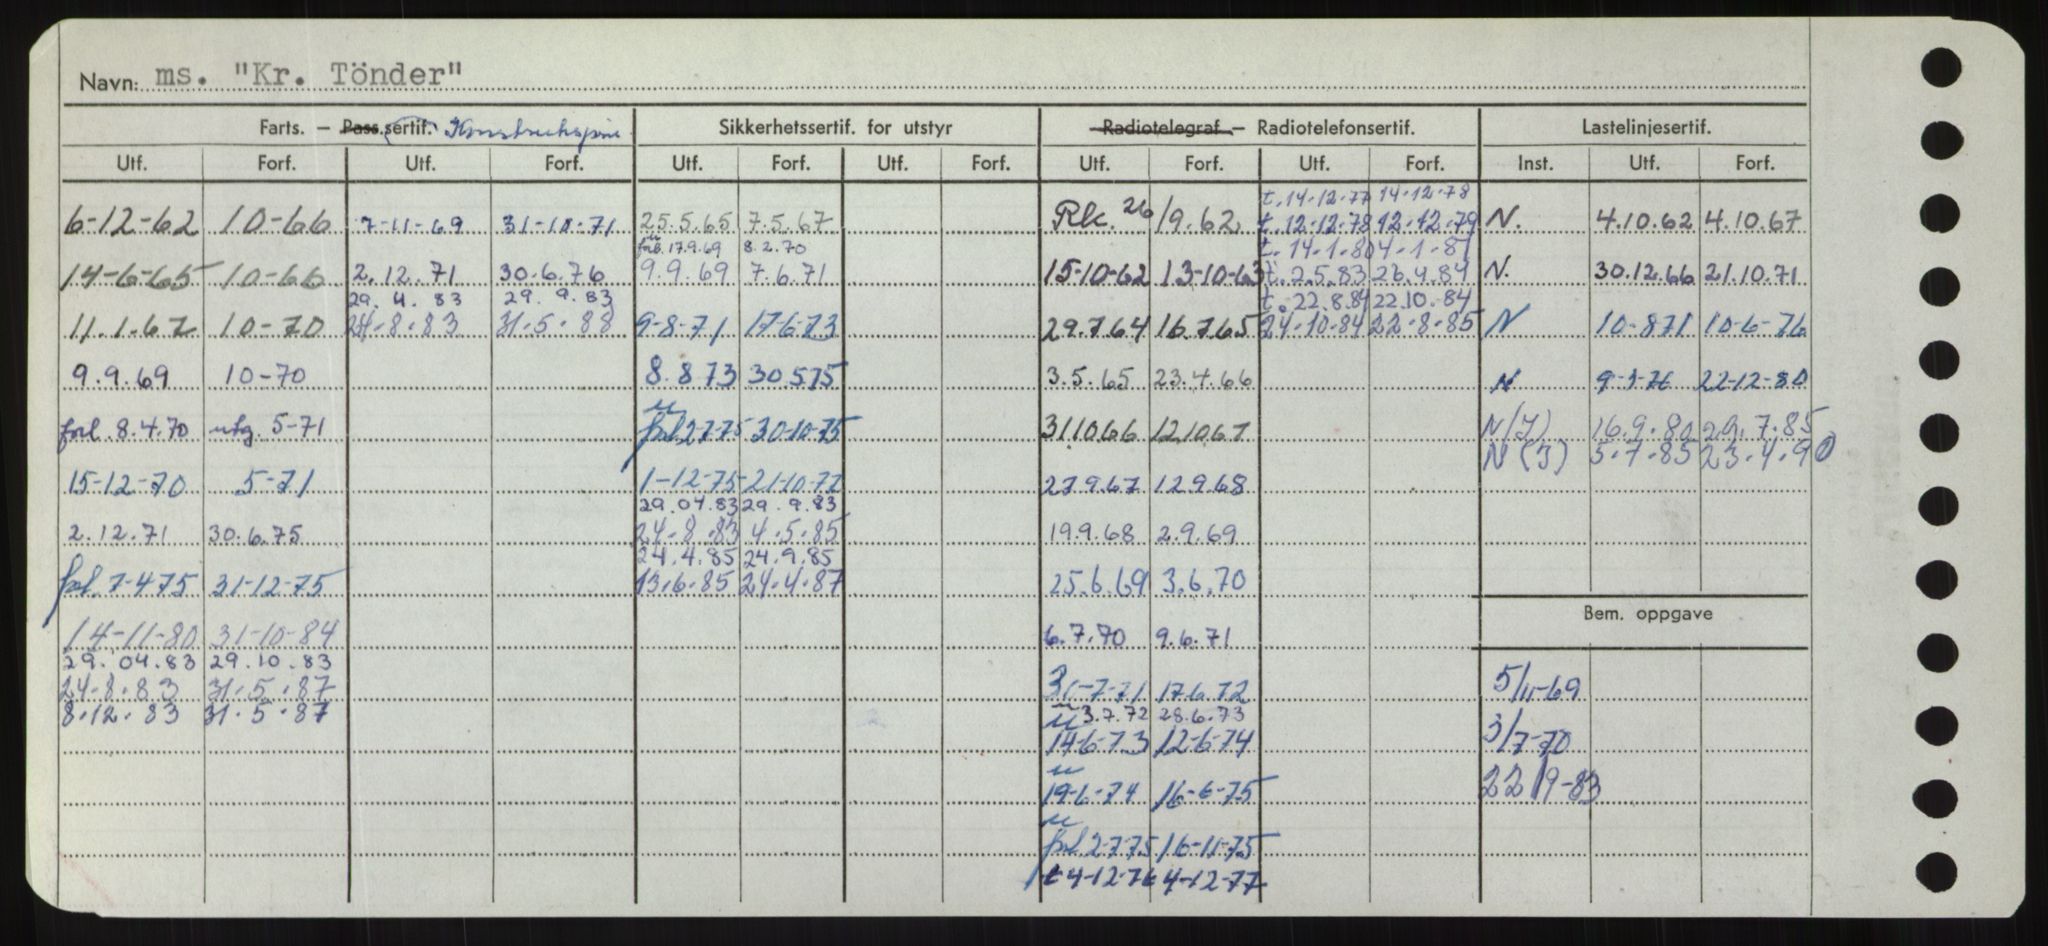 Navn: ms. "Kr. Tönder"
Farts. – Pass.sertif. Konstruksjons Sikkerhetssertif. for utstyr Radiotelegraf – Radiotelefonsertif. Lastelinjesertif.
Utf. Forf. Utf. Forf. Utf. Forf. Utf. Forf. Utf. Forf. Utf. Forf. Inst. Utf. Forf.
t. 14-12-77 14-12-78
6-12-62 10-66 7-11-69 31-10-71 25.5.65 7.5.67 Rk. 26/9.62 t. 12-12-78 12-12-79 N. 4.10.62 4.10.67
forl. 17.9.69 8.2.70 t. 14-1-80 4-1-81
14-6-65 10-66 2.12.71 30.6.76 9.9.69 7.6.71 15-10-62 13-10-63 t. 2.5.83 26.4.84 N. 30.12.66 21.10.71
29.4.83 29.9.83 t. 22.8.84 22.10.84
11.1.67 10-70 24.8.83 31.5.88 9-8-71 17-6-73 29.7.64 16.7.65 24-10-84 22-8-85 N 10-871 10-6-76
9.9.69 10-70 8.873 30.575 3.5.65 23.4.66 N 9-3-76 22-12-80
forl. 8.4.70 utg. 5-71 u forl 27-75 30-10-75 311066 121067 N(J) 16.9.80 29.7.85
N (J) 5.7.85 23.4.90
15-12-70 5-71 1-12-75 21-10-77 27.9.67 12968
29.04.83 29.9.83
2.12.71 30.6.75 24.8.83 4.5.85 19.9.68 2.9.69
24.4.85 24.9.85
forl. 7-475 31-12-75 13.6.85 24.4.87 25.6.69 3.6.70
Bem. oppgave
14-11-80 31-10-84 6.7.70 9.6.71
29.04.83 29.10.83
24.8.83 31.5.87 30-7-71 17.6.72 5/11-69
8.12.83 31.5.87 u 3.7.72 28.6.73
u 14-6-73 12-6-74 3/7-70
u 19-6-74 16-6-75 22/9-83
u forl. 2775 16-11-75
t 4-12-76 4-12-77